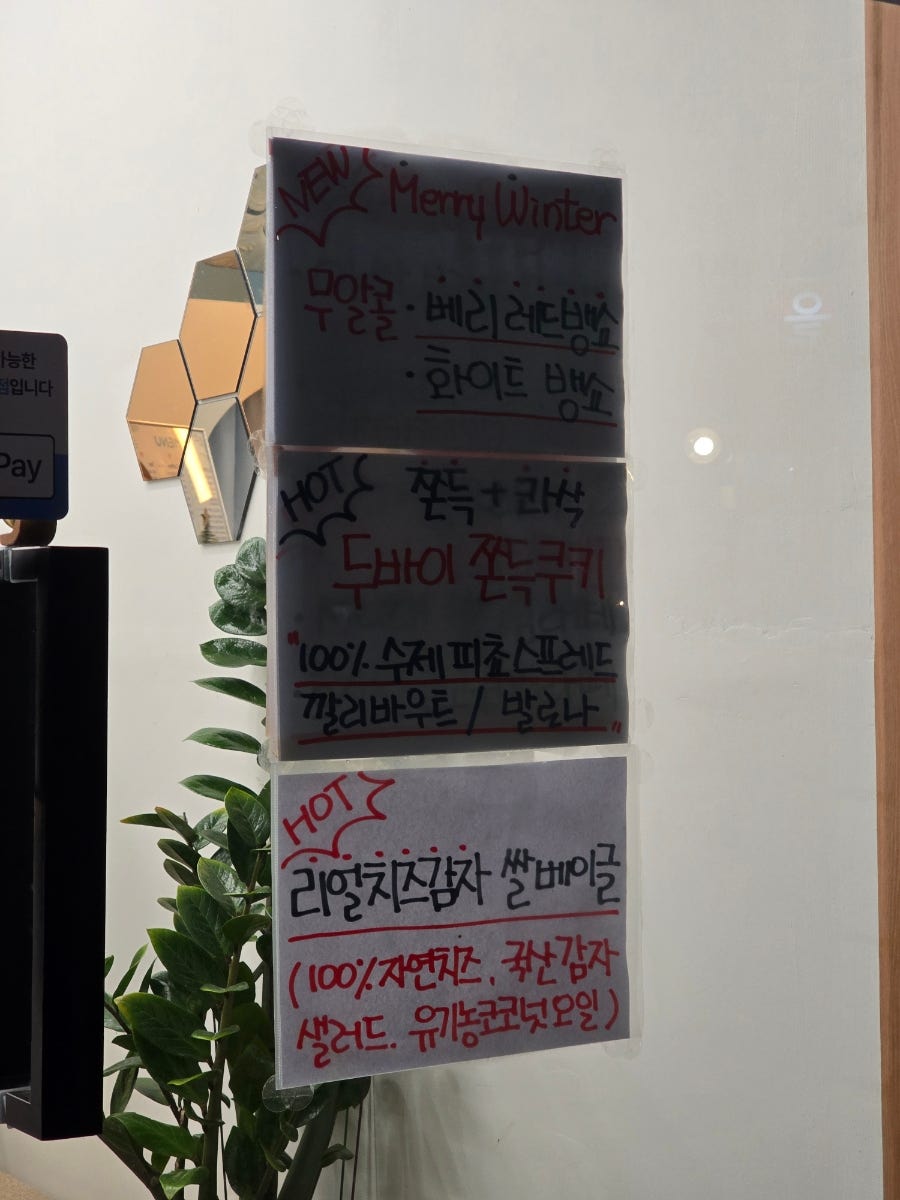 가능한
점입니다
Pay
NEW Merry Winter
무알콜 · 베리 레드뱅쇼
· 화이트 뱅쇼
HOT 쫀득 + 콰삭
두바이 쫀득쿠키
"100% 수제 피초스프레드
깔리바우트 / 발로나"
HOT
리얼치즈감자 쌀베이글
(100% 자연치즈, 국산감자
샐러드. 유기농코코넛오일)